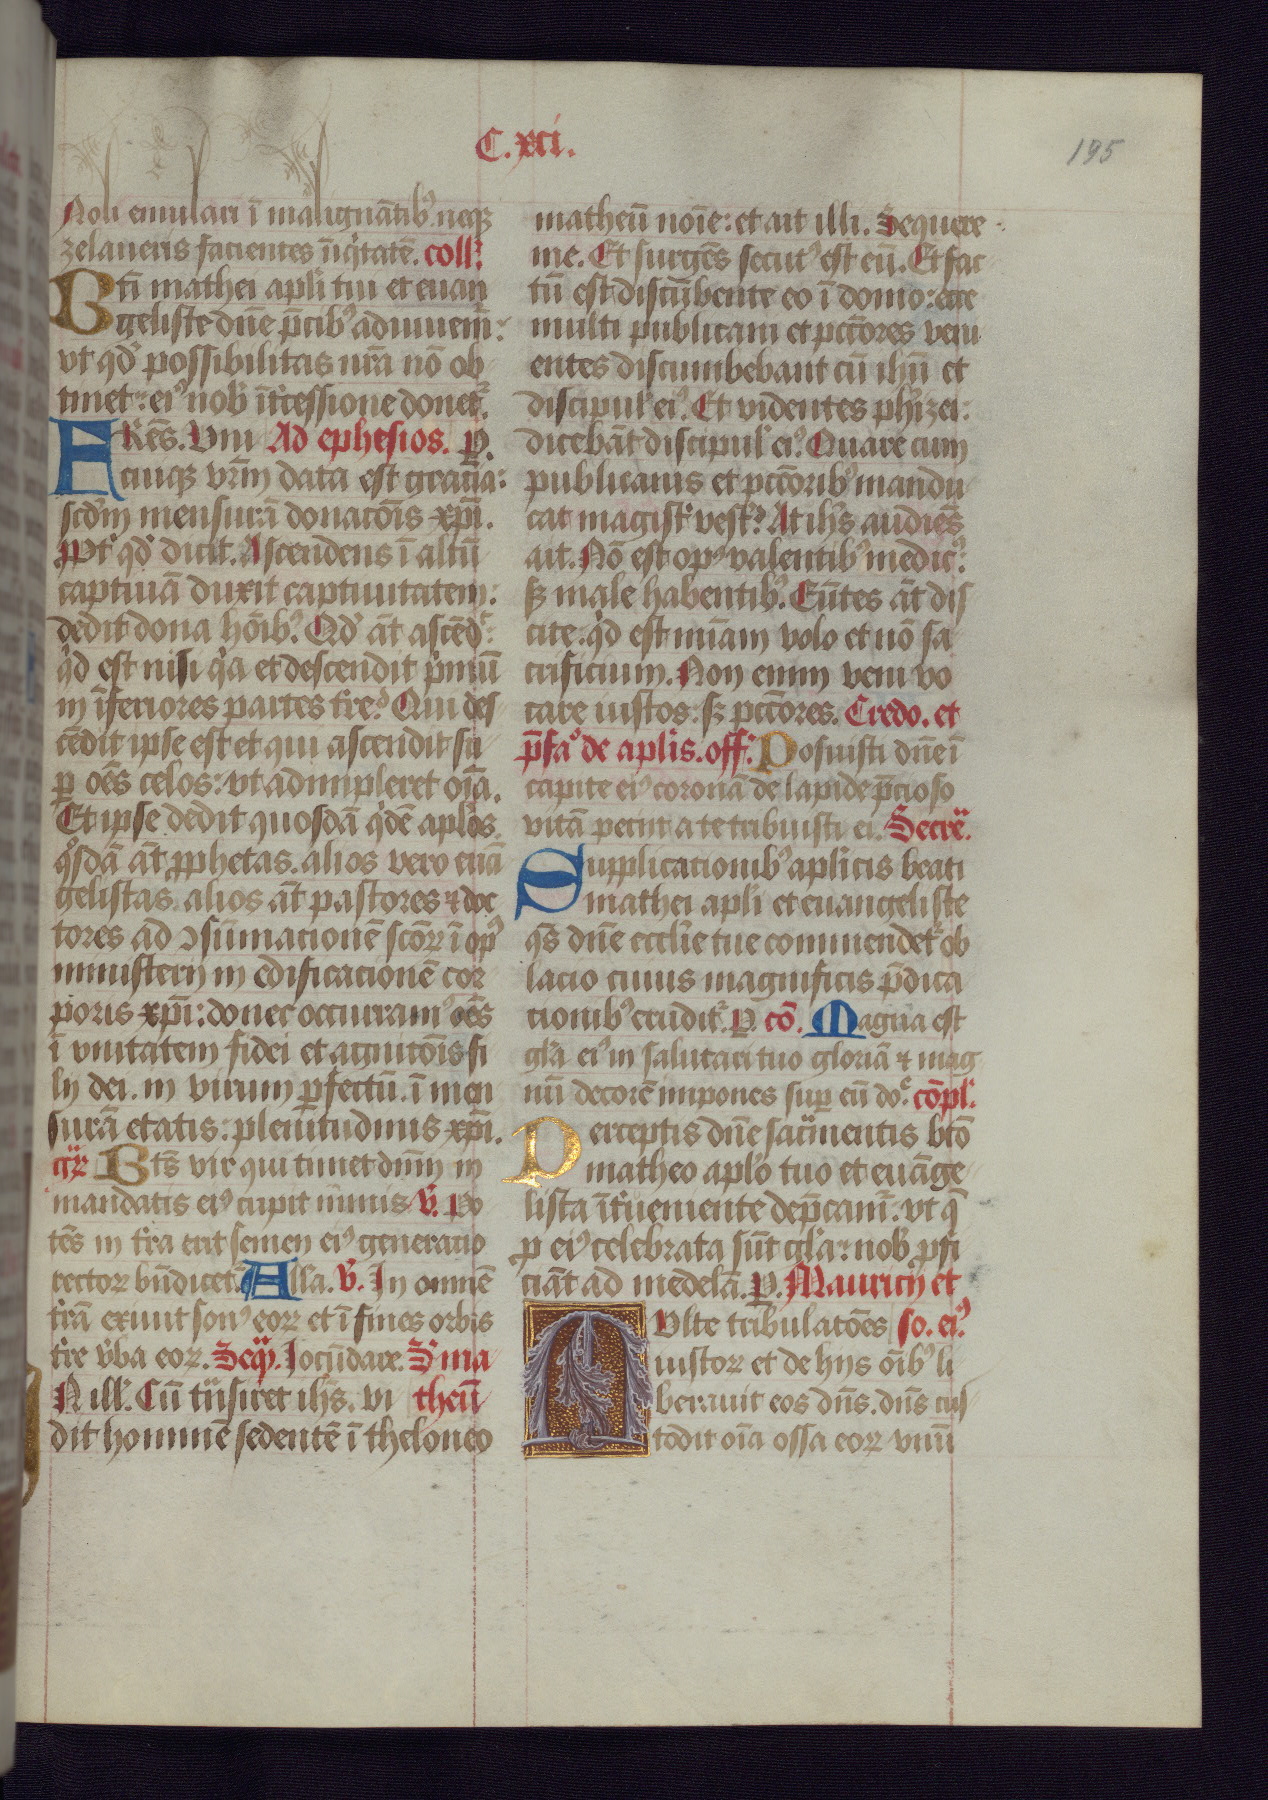 C. xci.
195
Noli emulari ī malignātib⁹ neqꝫ
zelaueris facientes īiq̇tatē. coll'.
Bti̅ mathei apl̅i tui et euan
geliste dn̅e p̅cib⁹ adiuuem̅:
vt qd̕ possibilitas nr̅a nō ob
tinet: ei⁹ nob̕ īt̕cessione donet᷑.
Fr̅es. Vni Ad ephesios. P.
cuiqꝫ vr̅m data est gracia:
scd̅m mensurā donacōis xp̅i.
Ppt̕ qd̕ dicit. Ascendens ī altū
captiuā duxit captiuitatem:
dedit dona hōib⁹. Qd̕ āt ascēd̕:
q̇d est nisi q̇a et descendit ṗmū
in īferiores partes tr̅e? Qui des
cēdit ipse est et qui ascendit su
ꝑ oēs celos: vt adimpleret oīa.
Et ipse dedit quosdā q̇dē apl̅os
q̊sdā āt ꝓphetas. alios vero euā
gelistas. alios āt pastores ⁊ doc
tores ad ꝯsūmacionē scōꝝ ī op⁹
ministerij in edificacionē cor
poris xp̅i: donec occurram⁹ oēs
ī vnitatem fidei et agnicōis fi
lij dei. in virum ꝑfectū. ī men
surā etatis: plenitudinis xp̅i.
Gr̅ Bt̅s vir qui timet dn̅m in
mandatis ei⁹ cupit nimis. V̅. Po
tēs in tr̅a erit semen ei⁹ generatio
rectoꝝ bn̅dicet᷑. All̅a. V̅. In omnē
tr̅ā exiuit son⁹ eoꝝ et ī fines orbis
tr̅e v̕ba eoꝝ. Seq̅. Jocūdare. S̕ ma
N ill'. Cū trā̅siret ih̅s. vi theū
dit hominē sedentē ī theloneo
matheū noīe: et ait illi. Sequere
me. Et surgēs secut⁹ est eū. Et fac
tū est discūbente eo ī domo: ecce
multi publicani et pctōres veni
entes discumbebant cū ihū et
discipul̕ ei⁹. Et videntes ph̕izei:
dicebāt discipul̕ ei⁹. Quare cum
publicanis et pctōrib⁹ mandu
cat magist̕ vest̕? At ih̅s audiēs
ait. Nō est op⁹ valentib⁹ medic⁹:
sꝫ male habentib⁹. Eūtes āt dis
cite. q̇d est mi̅am volo et nō sa
crificium. Non enim veni vo
care iustos: sꝫ pctōres. Credo. et
p̅få de apl̅is. off̅. Posuisti dn̅e ī
capite ei⁹ coronā de lapide p̅cioso
vitā petiit a te tribuisti ei. Secre̅.
Supplicationib⁹ apl̅icis beati
mathei apl̅i et euangeliste
q̅s dn̅e eccl̅ie tue commendet᷑ ob
lacio cuius magnificis p̅dica
tionib⁹ erudit᷑. P. cō. Magna est
gl̅a ei⁹ in salutari tuo gloriā ⁊ mag
nū decorē impones suꝑ eū do̕. cōpl'.
Perceptis dn̅e sacr̅mentis bt̅o
matheo apl̅o tuo et euāge
lista īt̕ueniente dep̅cam᷑: vt q̅
ꝓ ei⁹ celebrata sūt gl̅a: nob̕ ꝓfi
ciāt ad medelā. P. Mauricij et
Multe tribulacōes so. ei⁹.
iustoꝝ et de hijs oīb⁹ li
berauit eos dn̅s. dn̅s cus
todit oīa ossa eoꝝ vnū